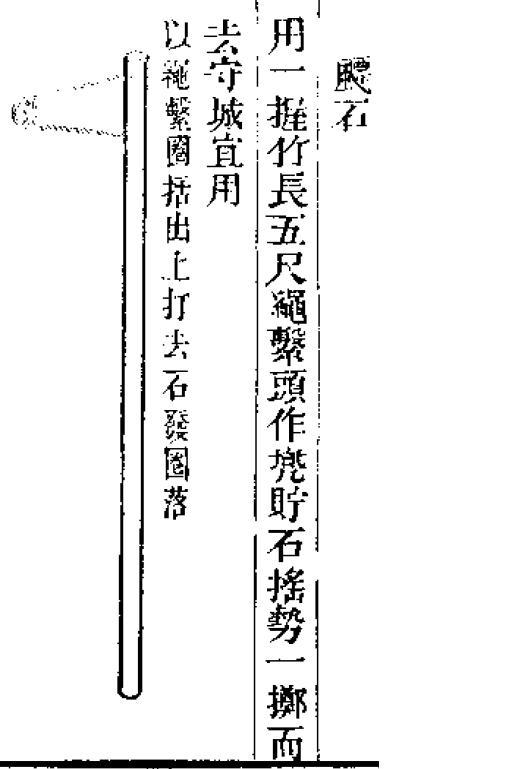 石
用一握竹長五尺繩繫頭作兜貯石搖勢一擲而
去守城宜用
以繩繫圈括出上打去石發圈落